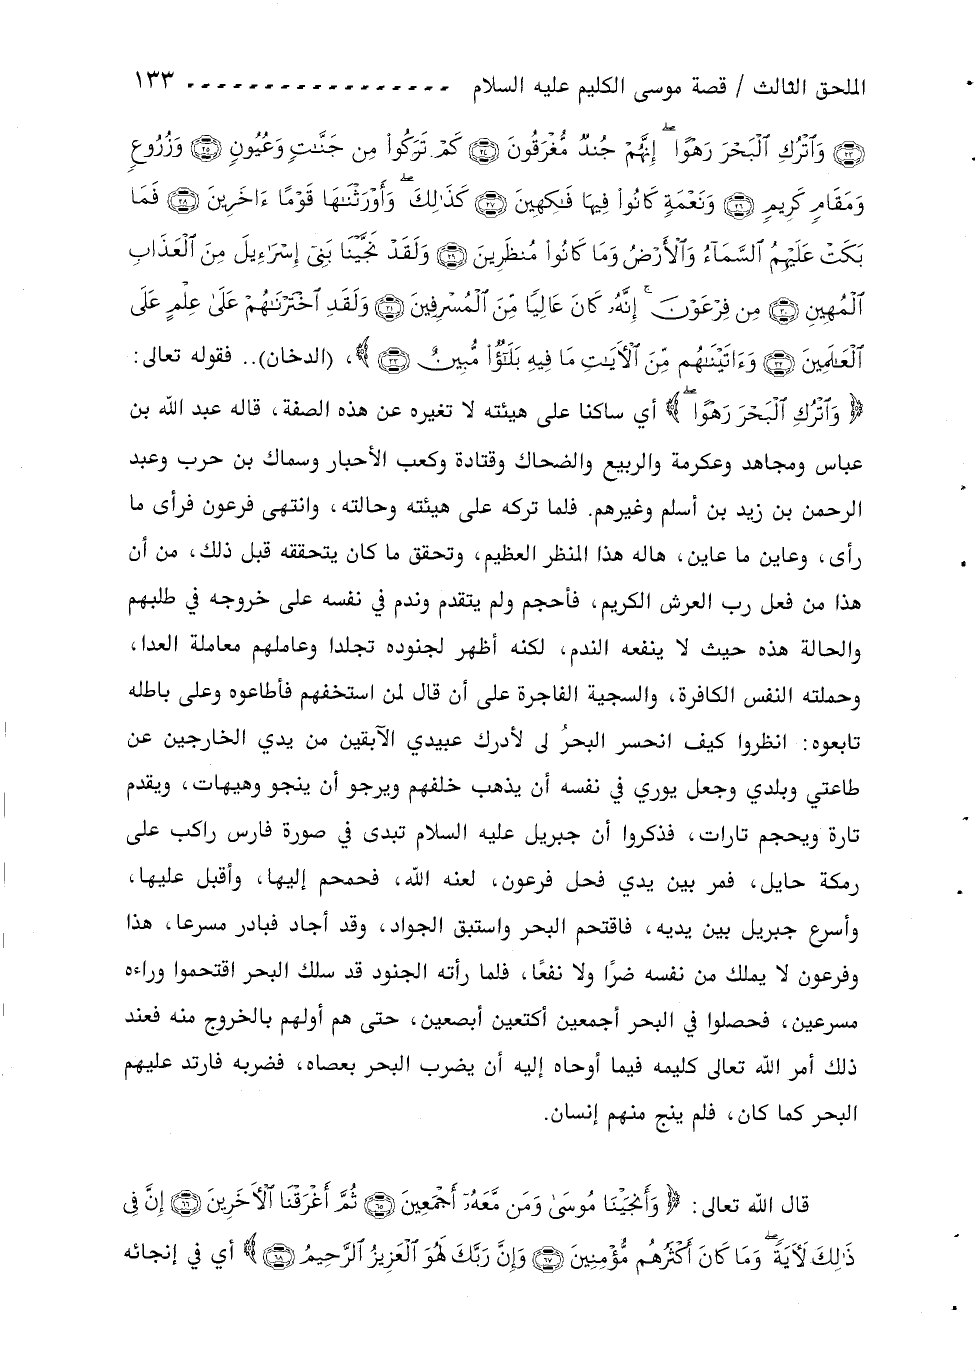 الملحق الثالث / قصة موسى الكليم عليه السلام ................. ١٣٣
﴿٢٣﴾ وَٱتْرُكِ ٱلْبَحْرَ رَهْوًا ۖ إِنَّهُمْ جُندٌ مُّغْرَقُونَ ﴿٢٤﴾ كَمْ تَرَكُوا۟ مِن جَنَّٰتٍ وَعُيُونٍ ﴿٢٥﴾ وَزُرُوعٍ
وَمَقَامٍ كَرِيمٍ ﴿٢٦﴾ وَنَعْمَةٍ كَانُوا۟ فِيهَا فَٰكِهِينَ ﴿٢٧﴾ كَذَٰلِكَ ۖ وَأَوْرَثْنَٰهَا قَوْمًا ءَاخَرِينَ ﴿٢٨﴾ فَمَا
بَكَتْ عَلَيْهِمُ ٱلسَّمَآءُ وَٱلْأَرْضُ وَمَا كَانُوا۟ مُنظَرِينَ ﴿٢٩﴾ وَلَقَدْ نَجَّيْنَا بَنِىٓ إِسْرَٰٓءِيلَ مِنَ ٱلْعَذَابِ
ٱلْمُهِينِ ﴿٣٠﴾ مِن فِرْعَوْنَ ۚ إِنَّهُۥ كَانَ عَالِيًا مِّنَ ٱلْمُسْرِفِينَ ﴿٣١﴾ وَلَقَدِ ٱخْتَرْنَٰهُمْ عَلَىٰ عِلْمٍ عَلَى
ٱلْعَٰلَمِينَ ﴿٣٢﴾ وَءَاتَيْنَٰهُم مِّنَ ٱلْءَايَٰتِ مَا فِيهِ بَلَٰٓؤٌا۟ مُّبِينٌ ﴿٣٣﴾ ﴾، (الدخان).. فقوله تعالى:
﴿ وَٱتْرُكِ ٱلْبَحْرَ رَهْوًا ۖ ﴾ أي ساكنا على هيئته لا تغيره عن هذه الصفة، قاله عبد الله بن
عباس ومجاهد وعكرمة والربيع والضحاك وقتادة وكعب الأحبار وسماك بن حرب وعبد
الرحمن بن زيد بن أسلم وغيرهم. فلما تركه على هيئته وحالته، وانتهى فرعون فرأى ما
رأى، وعاين ما عاين، هاله هذا المنظر العظيم، وتحقق ما كان يتحققه قبل ذلك، من أن
هذا من فعل رب العرش الكريم، فأحجم ولم يتقدم وندم في نفسه على خروجه في طلبهم
والحالة هذه حيث لا ينفعه الندم، لكنه أظهر لجنوده تجلدا وعاملهم معاملة العدا،
وحملته النفس الكافرة، والسجية الفاجرة على أن قال لمن استخفهم فأطاعوه وعلى باطله
تابعوه: انظروا كيف انحسر البحرُ لى لأدرك عبيدي الآبقين من يدي الخارجين عن
طاعتي وبلدي وجعل يوري في نفسه أن يذهب خلفهم ويرجو أن ينجو وهيهات، ويقدم
تارة ويحجم تارات، فذكروا أن جبريل عليه السلام تبدى في صورة فارس راكب على
رمكة حايل، فمر بين يدي فحل فرعون، لعنه الله، فحمحم إليها، وأقبل عليها،
وأسرع جبريل بين يديه، فاقتحم البحر واستبق الجواد، وقد أجاد فبادر مسرعا، هذا
وفرعون لا يملك من نفسه ضرًا ولا نفعًا، فلما رأته الجنود قد سلك البحر اقتحموا وراءه
مسرعين، فحصلوا في البحر أجمعين أكتعين أبصعين، حتى هم أولهم بالخروج منه فعند
ذلك أمر الله تعالى كليمه فيما أوحاه إليه أن يضرب البحر بعصاه، فضربه فارتد عليهم
البحر كما كان، فلم ينج منهم إنسان.
قال الله تعالى: ﴿ وَأَنجَيْنَا مُوسَىٰ وَمَن مَّعَهُۥٓ أَجْمَعِينَ ﴿٦٥﴾ ثُمَّ أَغْرَقْنَا ٱلْءَاخَرِينَ ﴿٦٦﴾ إِنَّ فِى
ذَٰلِكَ لَءَايَةً ۖ وَمَا كَانَ أَكْثَرُهُم مُّؤْمِنِينَ ﴿٦٧﴾ وَإِنَّ رَبَّكَ لَهُوَ ٱلْعَزِيزُ ٱلرَّحِيمُ ﴿٦٨﴾ ﴾ أي في إنجائه